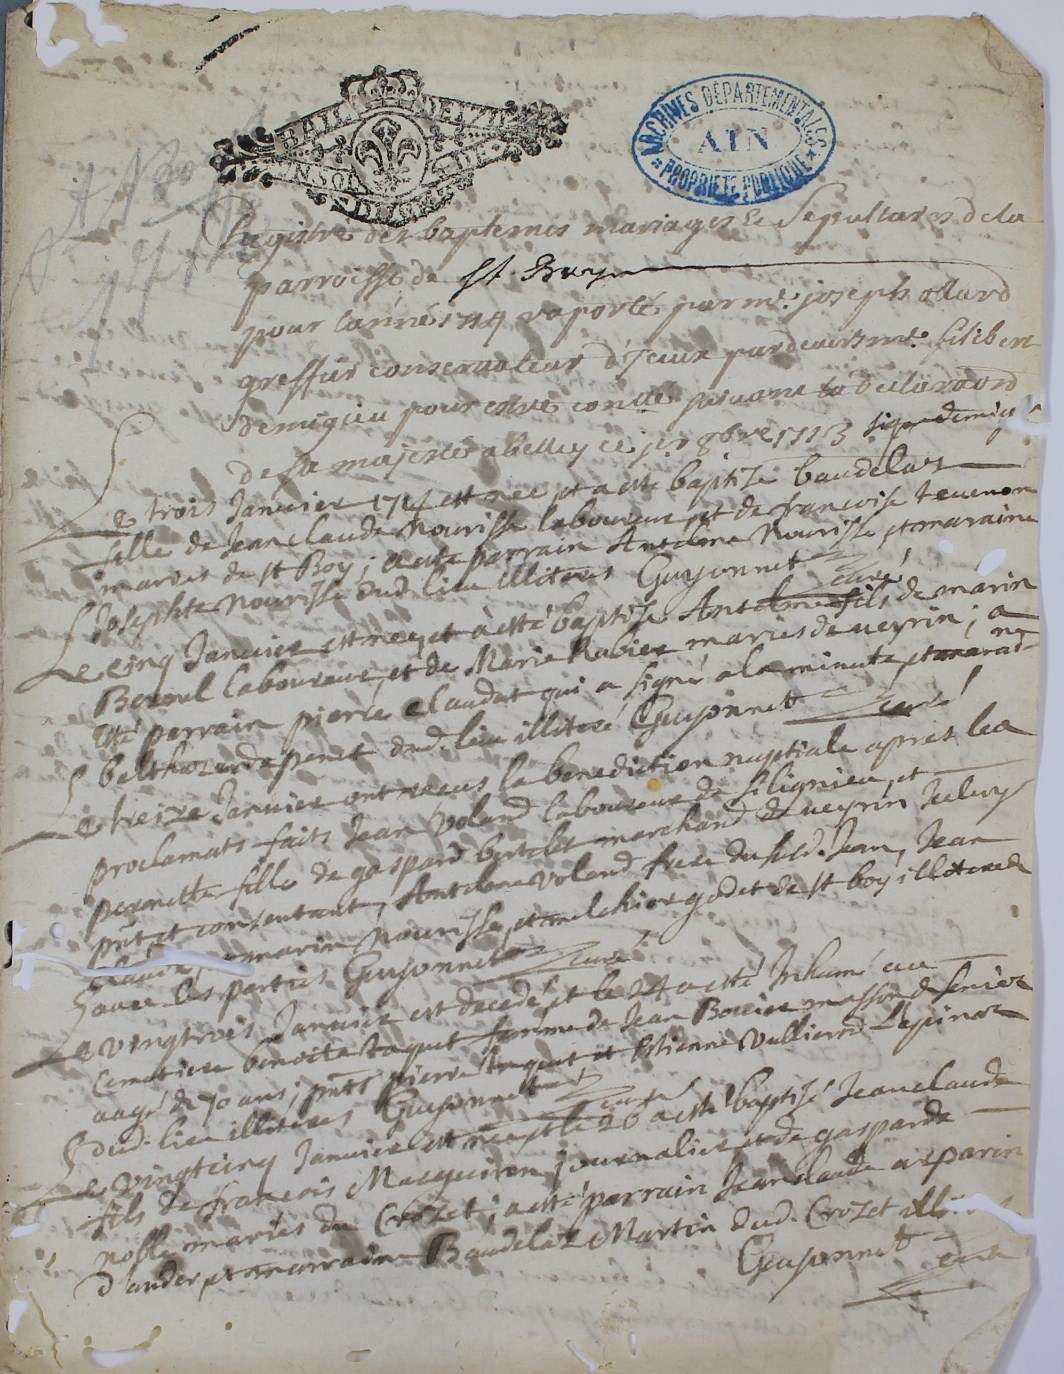 ARCHIVES DEPARTEMENTALES
AIN
PROPRIETE PUBLIQUE
Registre des baptemes mariages & Sepultures de la
parroisse de St Boys
pour lannée 1714 raporté par me. joseph ollard
greffier conservateur d'Iceux pardevant me. filibert
demigieu pour estre suivant la declaraõn
de sa majesté a belley ce 8bre 1713 signe demigieu
Le trois Janvier 1714 est née et a esté baptizé baudelas
fille de Jean claude Nourisse laboureur et de francoise Tevenon
maries de st Boy; a esté parrain Antelme Nourisse et maraine
Josephte Nourisse dud. lieu illiteres Guyonnet curé
Le cinq Janvier est né et à esté baptise Antelme fils de marin
Bornel laboureur, et de Marie Rubier maries de veyrin; a
esté parrain pierre Claudat qui a signé a la minute et marai-ne
belthazarde penet dud. lieu illiteré Guyonnet curé
Le treize Janvier ont receus la benediction nuptiale apres les
proclamats faits Jean Voland laboureur de silignieu, et
pernette fille de gaspard bertelet marchand de veyrin Iceluy
pñt et consentant, Antelme Voland frere dususd. Jean, Jean
claude, marin Nourisse, et melchior godet de st boy illiteres
avec les parties Guyonnet curé
Le vingtrois Janvier est decedé et le 24 a esté Inhumé au
Cemetiere benoite Taquet femme de Jean Borcier masson de
aagé de 70 ans; pñts pierre Tuquet et Estienne Vullierod Lapinoz
dud. lieu illiteres Guyonnet curé
Le vingtcinq Janvier est né et le 26 a esté baptisé Jeanclaude
fils de francois Macquiron journalier et de gasparde
nolle maries du Crozet; a esté parrain Jeanclaude
d'ander et marraine Baudelaz Martin dud. Crozet
Guyonnet curé